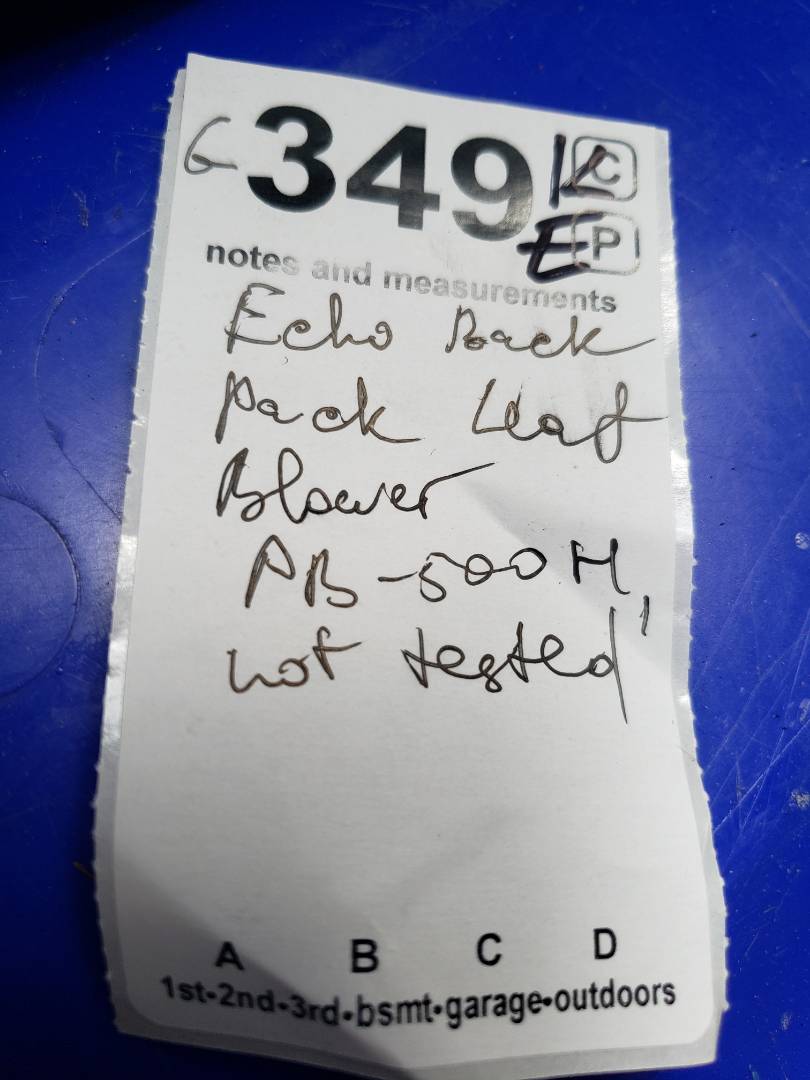 G 349 K C
E P
notes and measurements
Echo Back
Pack Leaf
Blower
PB-500H,
not tested
A B C D
1st-2nd-3rd•bsmt•garage•outdoors